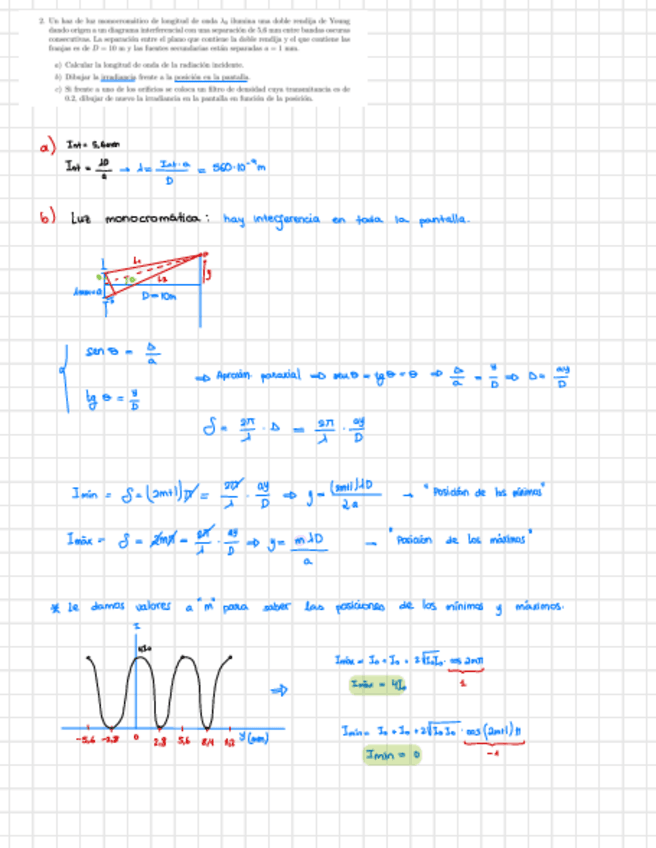 2. Un haz de luz monocromático de longitud de onda λ₀ ilumina una doble rendija de Young
dando origen a un diagrama interferencial con una separación de 5,6 mm entre bandas oscuras
consecutivas. La separación entre el plano que contiene la doble rendija y el que contiene las
franjas es de D = 10 m y las fuentes secundarias están separadas a = 1 mm.
a) Calcular la longitud de onda de la radiación incidente.
b) Dibujar la irradiancia frente a la posición en la pantalla.
c) Si frente a uno de los orificios se coloca un filtro de densidad cuya transmitancia es de
0.2, dibujar de nuevo la irradiancia en la pantalla en función de la posición.
a) Int = 5,6mm
Int = λD/a → λ = Int·a/D = 560·10⁻⁹ m
b) Luz monocromática: hay interferencia en toda la pantalla.
L₁
L₂
y
D=10m
sen θ = Δ/a
tg θ = y/D
⇒ Aproxim paraxial ⇒ sen θ = tg θ = θ ⇒ Δ/a = y/D ⇒ Δ = ay/D
δ = 2π/λ · Δ = 2π/λ · ay/D
Imin = δ = (2m+1)π = 2π/λ · ay/D ⇒ y = (2m+1)λD/2a → "Posición de los mínimos"
Imáx = δ = 2mπ = 2π/λ · ay/D ⇒ y = mλD/a → "Posición de los máximos"
* Le damos valores a "m" para saber las posiciones de los mínimos y máximos.
I
4I₀
-5,6 -2,8 0 2,8 5,6 8,4 11,2 y(mm)
⇒
Imáx = I₀ + I₀ + 2√I₀I₀ · cos 2mπ
1
Imáx = 4I₀
Imin = I₀ + I₀ + 2√I₀I₀ · cos(2m+1)π
-1
Imin = 0